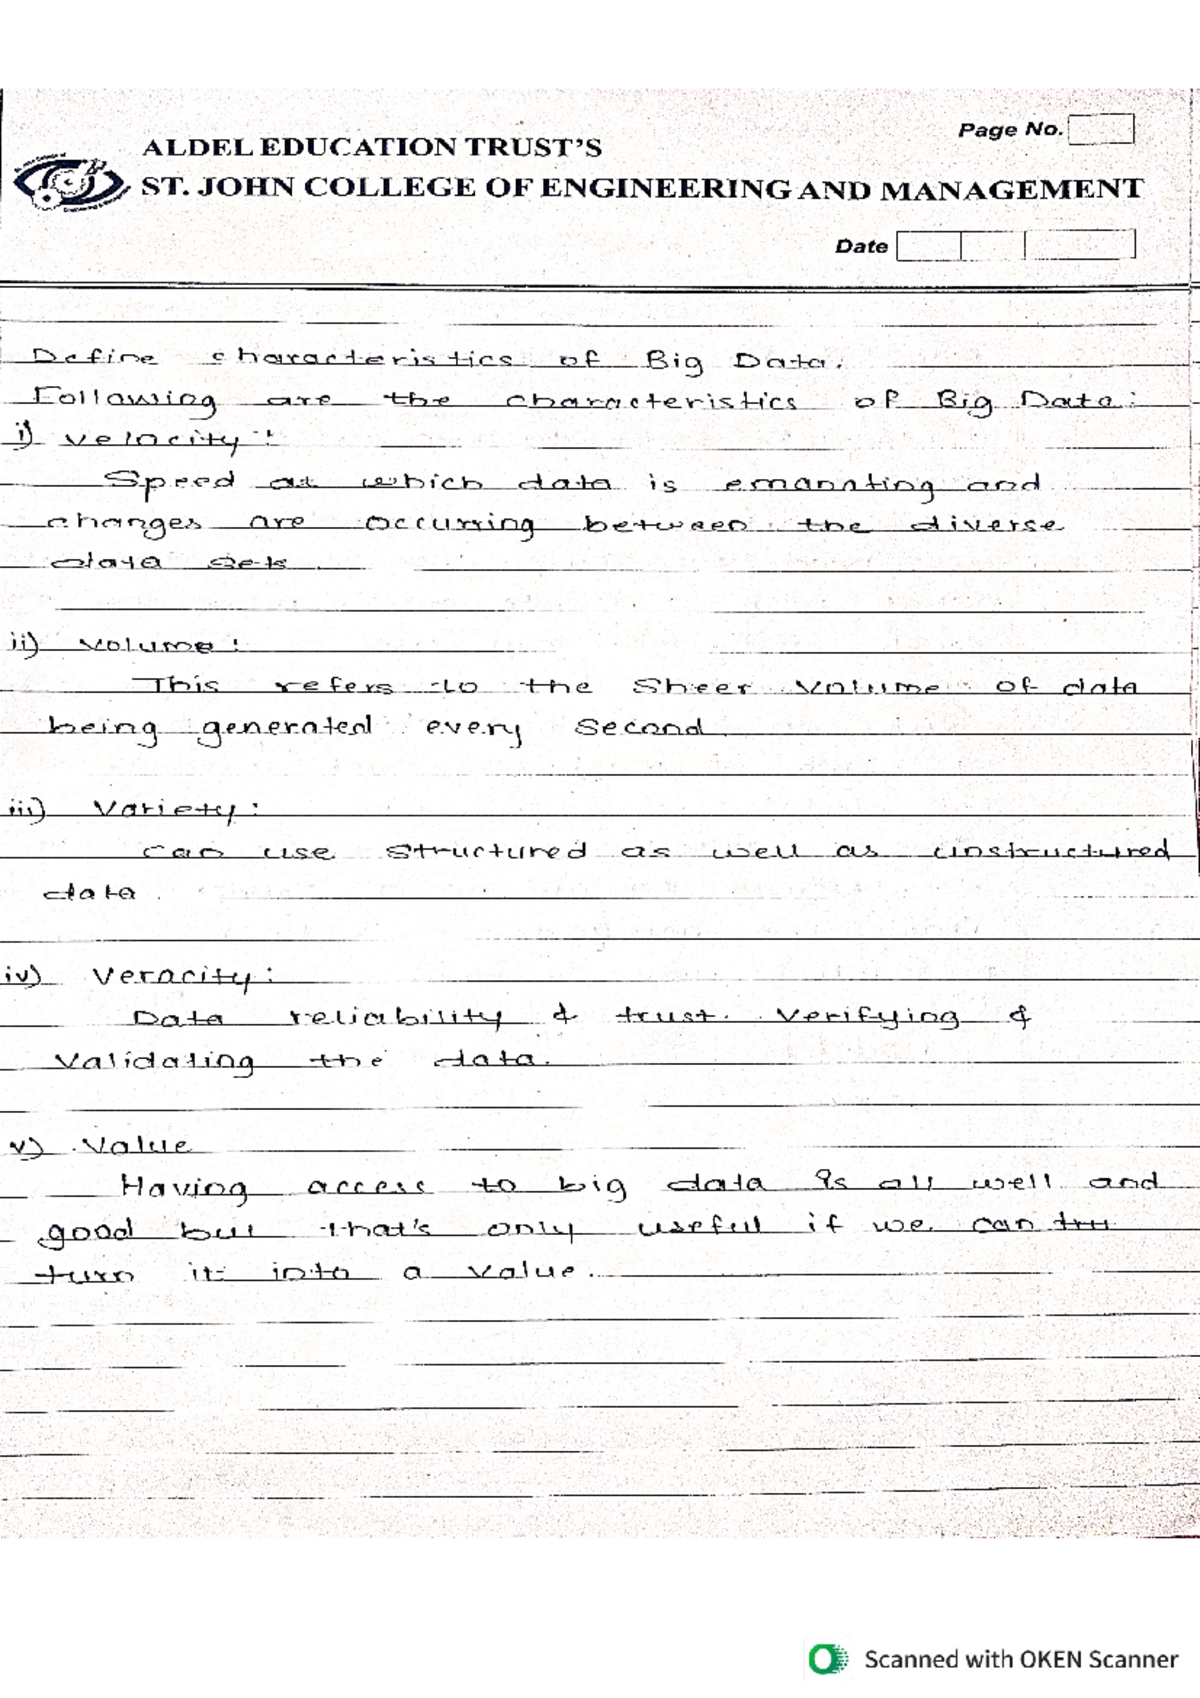 Page No.
ALDEL EDUCATION TRUST'S
ST. JOHN COLLEGE OF ENGINEERING AND MANAGEMENT
Date
Define characteristics of Big Data.
Following are the characteristics of Big Data:
i) velocity:
Speed at which data is emannting and
changes are occurring between the diverse
data sets
ii) volume:
This refers to the sheer volume of data
being generated every second
iii) Variety:
can use structured as well as unstructured
data.
iv) Veracity:
Data reliability & trust. Verifying &
Validating the data.
v) Value
Having access to big data is all well and
good but that's only useful if we can tru
turn it into a value.
Scanned with OKEN Scanner